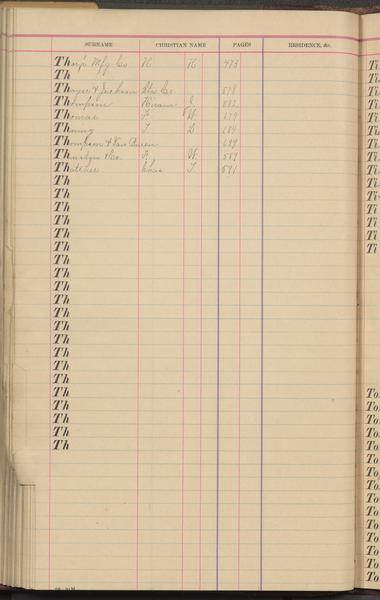 SURNAME CHRISTIAN NAME PAGES RESIDENCE, &c.
Thorp Mfg Co N H 473
Th
Thayer & Jackson Sta. Co. 578
Thompson Hiram C 582
Thomas F W 179
Thming T D 184
Thompson & Van Buren 649
Co. F. W. 589
Thatcher Chas T. 591
Th
Th
Th
Th
Th
Th
Th
Th
Th
Th
Th
Th
Th
Th
Th
Th
Th
Th
Th
Th
Th
Ti
Ti
Ti
Ti
Ti
Ti
Ti
Ti
Ti
Ti
Ti
Ti
Ti
Ti
Ti
To
To
To
To
To
To
To
To
To
To
To
To
To
To
To